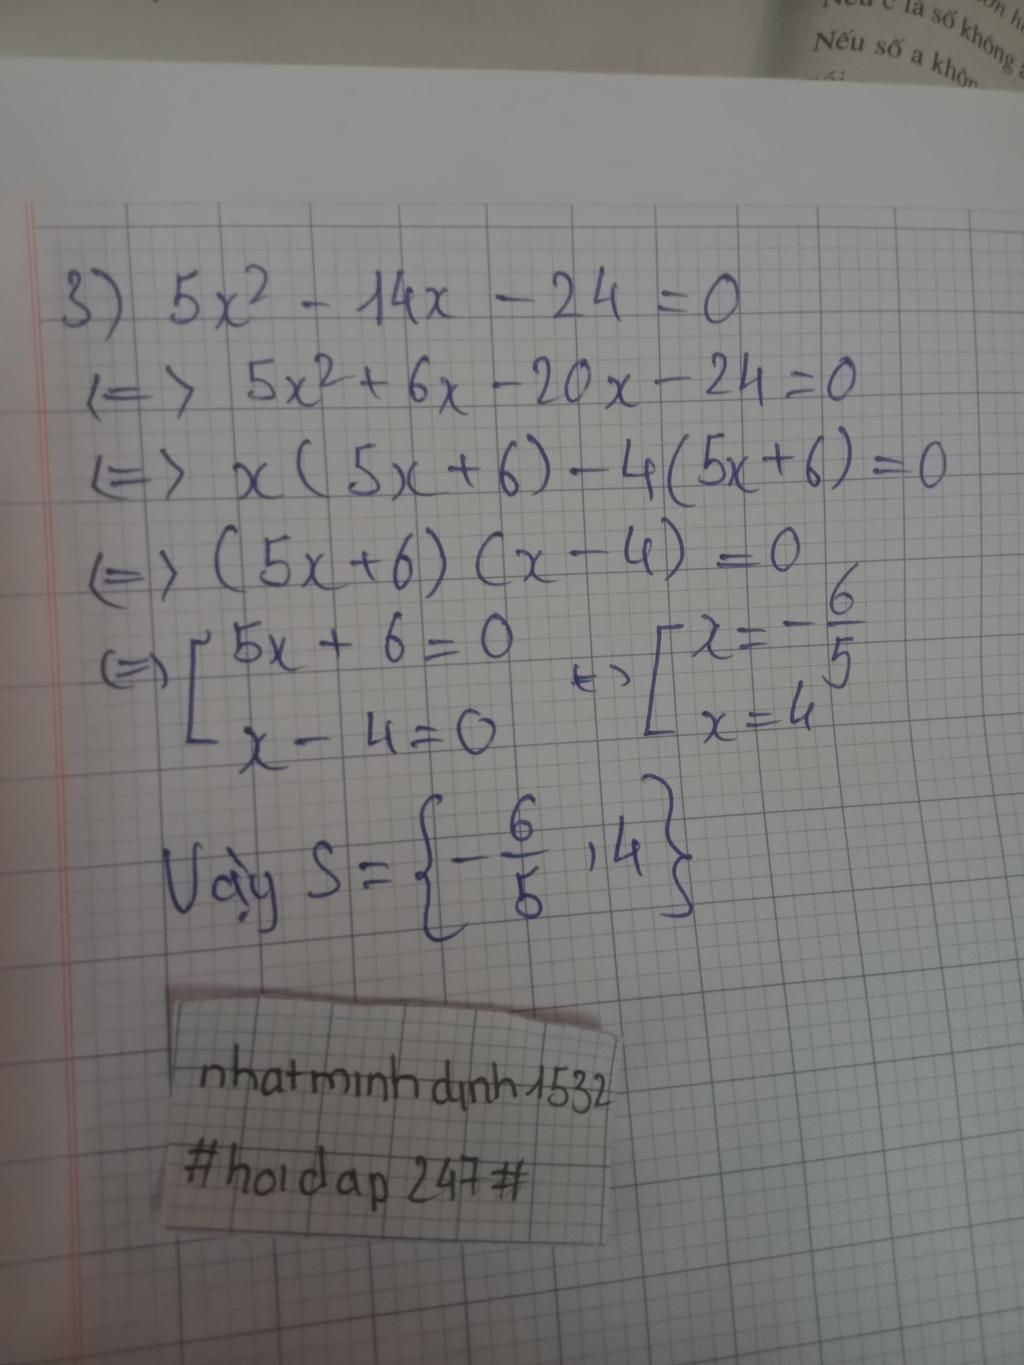 Nếu c là số không
Nếu số a khôn
3) 5x² - 14x - 24 = 0
<=> 5x² + 6x - 20x - 24 = 0
<=> x(5x + 6) - 4(5x + 6) = 0
<=> (5x + 6) (x - 4) = 0
<=> [ 5x + 6 = 0 <=> [ x = - 6/5
x - 4 = 0 x = 4
Vậy S = { - 6/5 , 4 }
nhatminhdinh1532
#hoidap247#